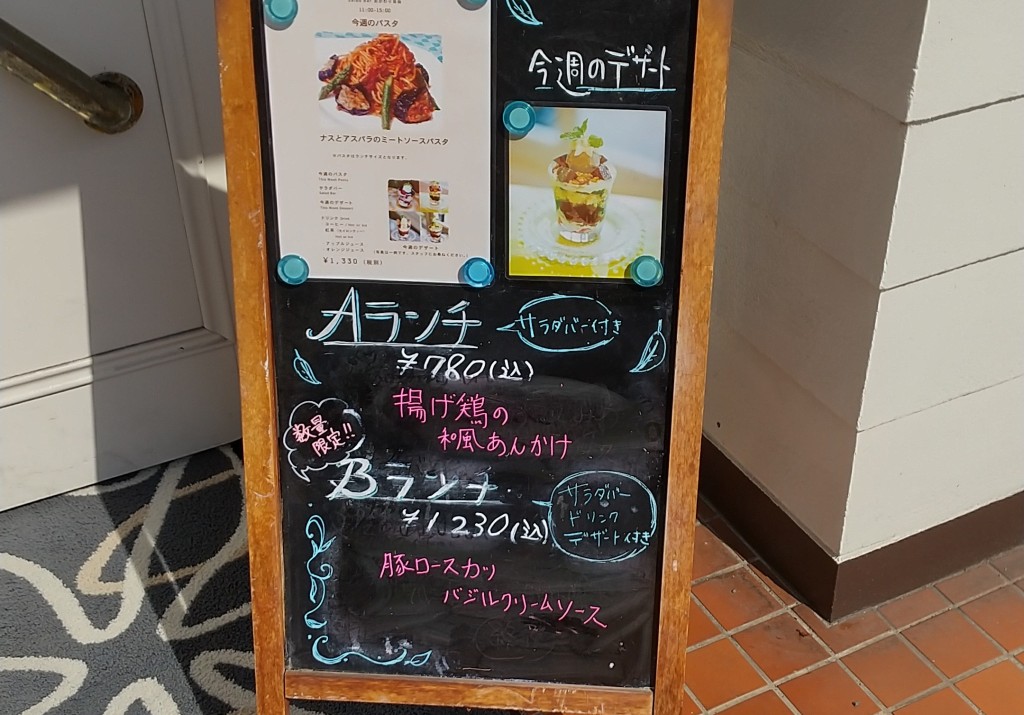 11:00-15:00
今週のパスタ
ナスとアスパラのミートソースパスタ
今週のパスタ
サラダバー
今週のデザート
ドリンク
アップルジュース
オレンジジュース
今週のデザート
¥1,330 (税別)
今週のデザート
Aランチ
サラダバー付き
¥780(込)
揚げ鶏の
和風あんかけ
数量
限定!!
Bランチ
サラダバー
ドリンク
デザート付き
¥1230(込)
豚ロースカツ
バジルクリームソース